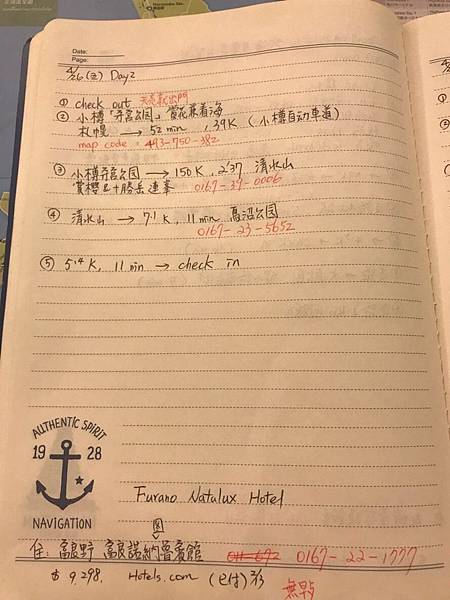 Date:
Page:
4/26 (金) Day2
① check out 天亮就出門
② 小樽「手宮公園」賞花兼看海
札幌 → 52 min , 39K (小樽自动車道)
map code : 493-750-382
③ 小樽手宮公园 → 150K, 2'37 清水山
賞櫻&十勝岳連峯 0167-37-0006
④ 清水山 → 7.1 K, 11 min 鳥沼公园
0167-23-5652
⑤ 5.4 K, 11 min → check in
AUTHENTIC SPIRIT
1928
NAVIGATION
Furano Natulux Hotel
住: 富良野 富良諾納魯賓館 0167-22-1777
$ 9,298. Hotels.com (已付)
無早